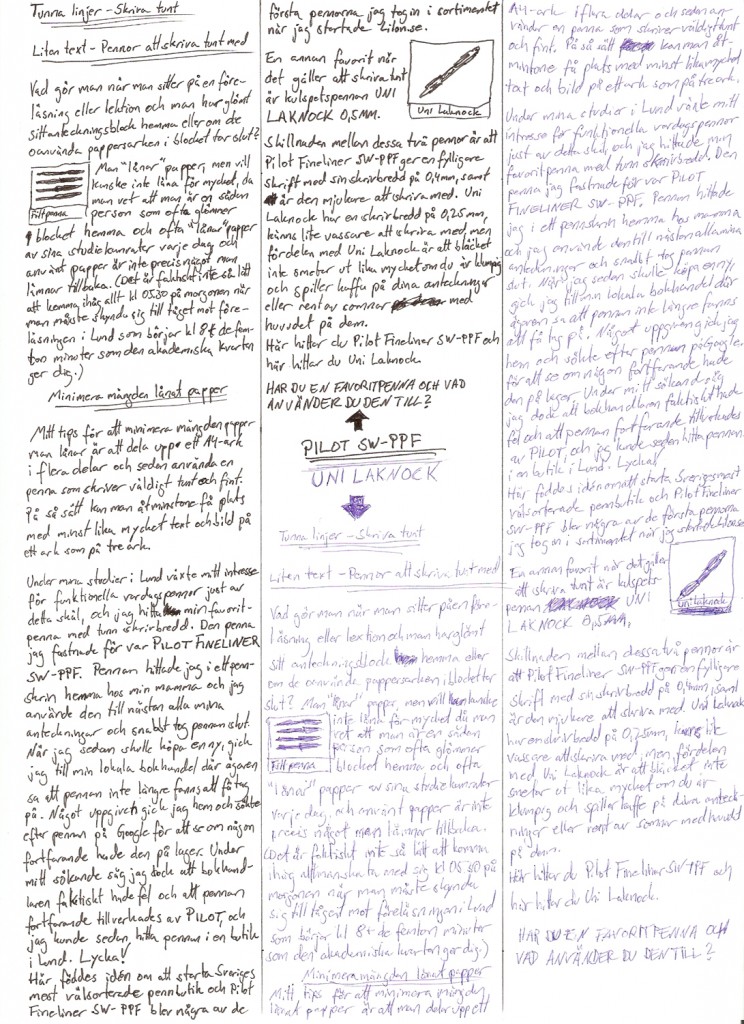 Tunna linjer - Skriva tunt
Liten text - Pennor att skriva tunt med
Vad gör man när man sitter på en före-
läsning eller lektion och man har glömt
sitt anteckningsblock hemma eller om de
oanvända pappersarken i blocket tar slut?
Man "lånar" papper, men vill
kanske inte låna för mycket, då
man vet att man är en sådan
Filtpenna
person som ofta glömmer
blocket hemma och ofta "lånar" papper
av sina studiekamrater varje dag och
använt papper är inte precis något man
lämnar tillbaka. (Det är faktiskt inte så lätt
att komma ihåg allt kl 05.30 på morgonen när
man måste skynda sig till tåget mot före-
läsningen i Lund som börjar kl 8 + de fem-
ton minuter som den akademiska kvarten
ger dig.)
Minimera mängden lånat papper
Mitt tips för att minimera mängden papper
man lånar är att dela upp ett A4-ark
i flera delar och sedan använda en
penna som skriver väldigt tunt och fint.
På så sätt kan man åtminstone få plats
med minst lika mycket text och bild på
ett ark som på tre ark.
Under mina studier i Lund växte mitt intresse
för funktionella vardagspennor just av
detta skäl, och jag hittade min favorit-
penna med tunn skrivbredd. Den penna
jag fastnade för var PILOT FINELINER
SW-PPF. Pennan hittade jag i ett penn-
skrin hemma hos min mamma och jag
använde den till nästan alla mina
anteckningar och snabbt tog pennan slut.
När jag sedan skulle köpa en ny, gick
jag till min lokala bokhandel där ägaren
sa att pennan inte längre fanns att få tag
på. Något uppgiven gick jag hem och sökte
efter pennan på Google för att se om någon
fortfarande hade den på lager. Under
mitt sökande såg jag dock att bokhand-
laren faktiskt hade fel och att pennan
fortfarande tillverkades av PILOT, och
jag kunde sedan hitta pennan i en butik
i Lund. Lycka!
Här föddes idén om att starta Sveriges
mest välsorterade pennbutik och Pilot
Fineliner SW-PPF blev några av de
första pennorna jag tog in i sortimentet
när jag startade
En annan favorit när
det gäller att skriva tunt
är kulspetspennan UNI
LAKNOCK 0,5MM.
Uni Laknock
Skillnaden mellan dessa två pennor är att
Pilot Fineliner SW-PPF ger en fylligare
skrift med sin skrivbredd på 0,4mm, samt
är den mjukare att skriva med. Uni
Laknock har en skrivbredd på 0,25mm,
känns lite vassare att skriva med men
fördelen med Uni Laknock är att bläcket
inte smetar ut lika mycket om du är klumpig
och spiller kaffe på dina anteckningar
eller rent av somnar med
huvudet på dem.
Här hittar du Pilot Fineliner SW-PPF och
här hittar du Uni Laknock.
HAR DU EN FAVORITPENNA OCH VAD
ANVÄNDER DU DEN TILL?
PILOT SW-PPF
UNI LAKNOCK
Tunna linjer - Skriva tunt
Liten text - Pennor att skriva tunt med
Vad gör man när man sitter på en före-
läsning eller lektion och man har glömt
sitt anteckningsblock hemma eller
om de oanvända pappersarken i blocket tar
slut? Man "lånar" papper, men vill kanske
inte låna för mycket då man
vet att man är en sådan
person som ofta glömmer
Filtpenna
blocket hemma och ofta
"lånar" papper av sina studiekamrater
varje dag, och använt papper är inte
precis något man lämnar tillbaka.
(Det är faktiskt inte så lätt att komma
ihåg att ta med sig kl 05.30 på
morgonen när man måste skynda
sig till tåget mot föreläsningen i Lund
som börjar kl 8 + de femton minuter
som den akademiska kvarten ger dig.)
Minimera mängden lånat papper
Mitt tips för att minimera mängden
lånat papper är att man delar upp ett
A4-ark i flera delar och sedan an-
vänder en penna som skriver väldigt tunt
och fint. På så sätt kan man åt-
minstone få plats med minst lika mycket
text och bild på ett ark som på tre ark.
Under mina studier i Lund växte mitt
intresse för funktionella vardagspennor
just av detta skäl och jag hittade min
favoritpenna med tunn skrivbredd. Den
penna jag fastnade för var PILOT
FINELINER SW-PPF. Pennan hittade
jag i ett pennskrin hemma hos mamma
och jag använde den till nästan alla mina
anteckningar och snabbt tog pennan
slut. När jag sedan skulle köpa en ny,
gick jag till min lokala bokhandel där
ägaren sa att pennan inte längre fanns
att få tag på. Något uppgiven gick jag
hem och sökte efter pennan på Google
för att se om någon fortfarande hade
den på lager. Under mitt sökande såg
jag dock att bokhandlaren faktiskt hade
fel och att pennan fortfarande tillverkades
av PILOT, och jag kunde sedan hitta pennan
i en butik i Lund. Lycka!
Här föddes idén om att starta Sveriges mest
välsorterade pennbutik och Pilot Fineliner
SW-PPF blev några av de första pennorna
jag tog in i sortimentet när jag startade
En annan favorit när det gäller
att skriva tunt är kulspets-
pennan UNI
LAKNOCK 0,5mm.
Uni Laknock
Skillnaden mellan dessa två pennor är
att Pilot Fineliner SW-PPF ger en fylligare
skrift med sin skrivbredd på 0,4mm, samt
är den mjukare att skriva med. Uni Laknock
har en skrivbredd på 0,25mm, känns lite
vassare att skriva med, men fördelen
med Uni Laknock är att bläcket inte
smetar ut lika mycket om du är
klumpig och spiller kaffe på dina anteck-
ningar eller rent av somnar med huvudet
på dem.
Här hittar du Pilot Fineliner SW-PPF och
här hittar du Uni Laknock.
HAR DU EN FAVORITPENNA OCH
VAD ANVÄNDER DU DEN TILL?